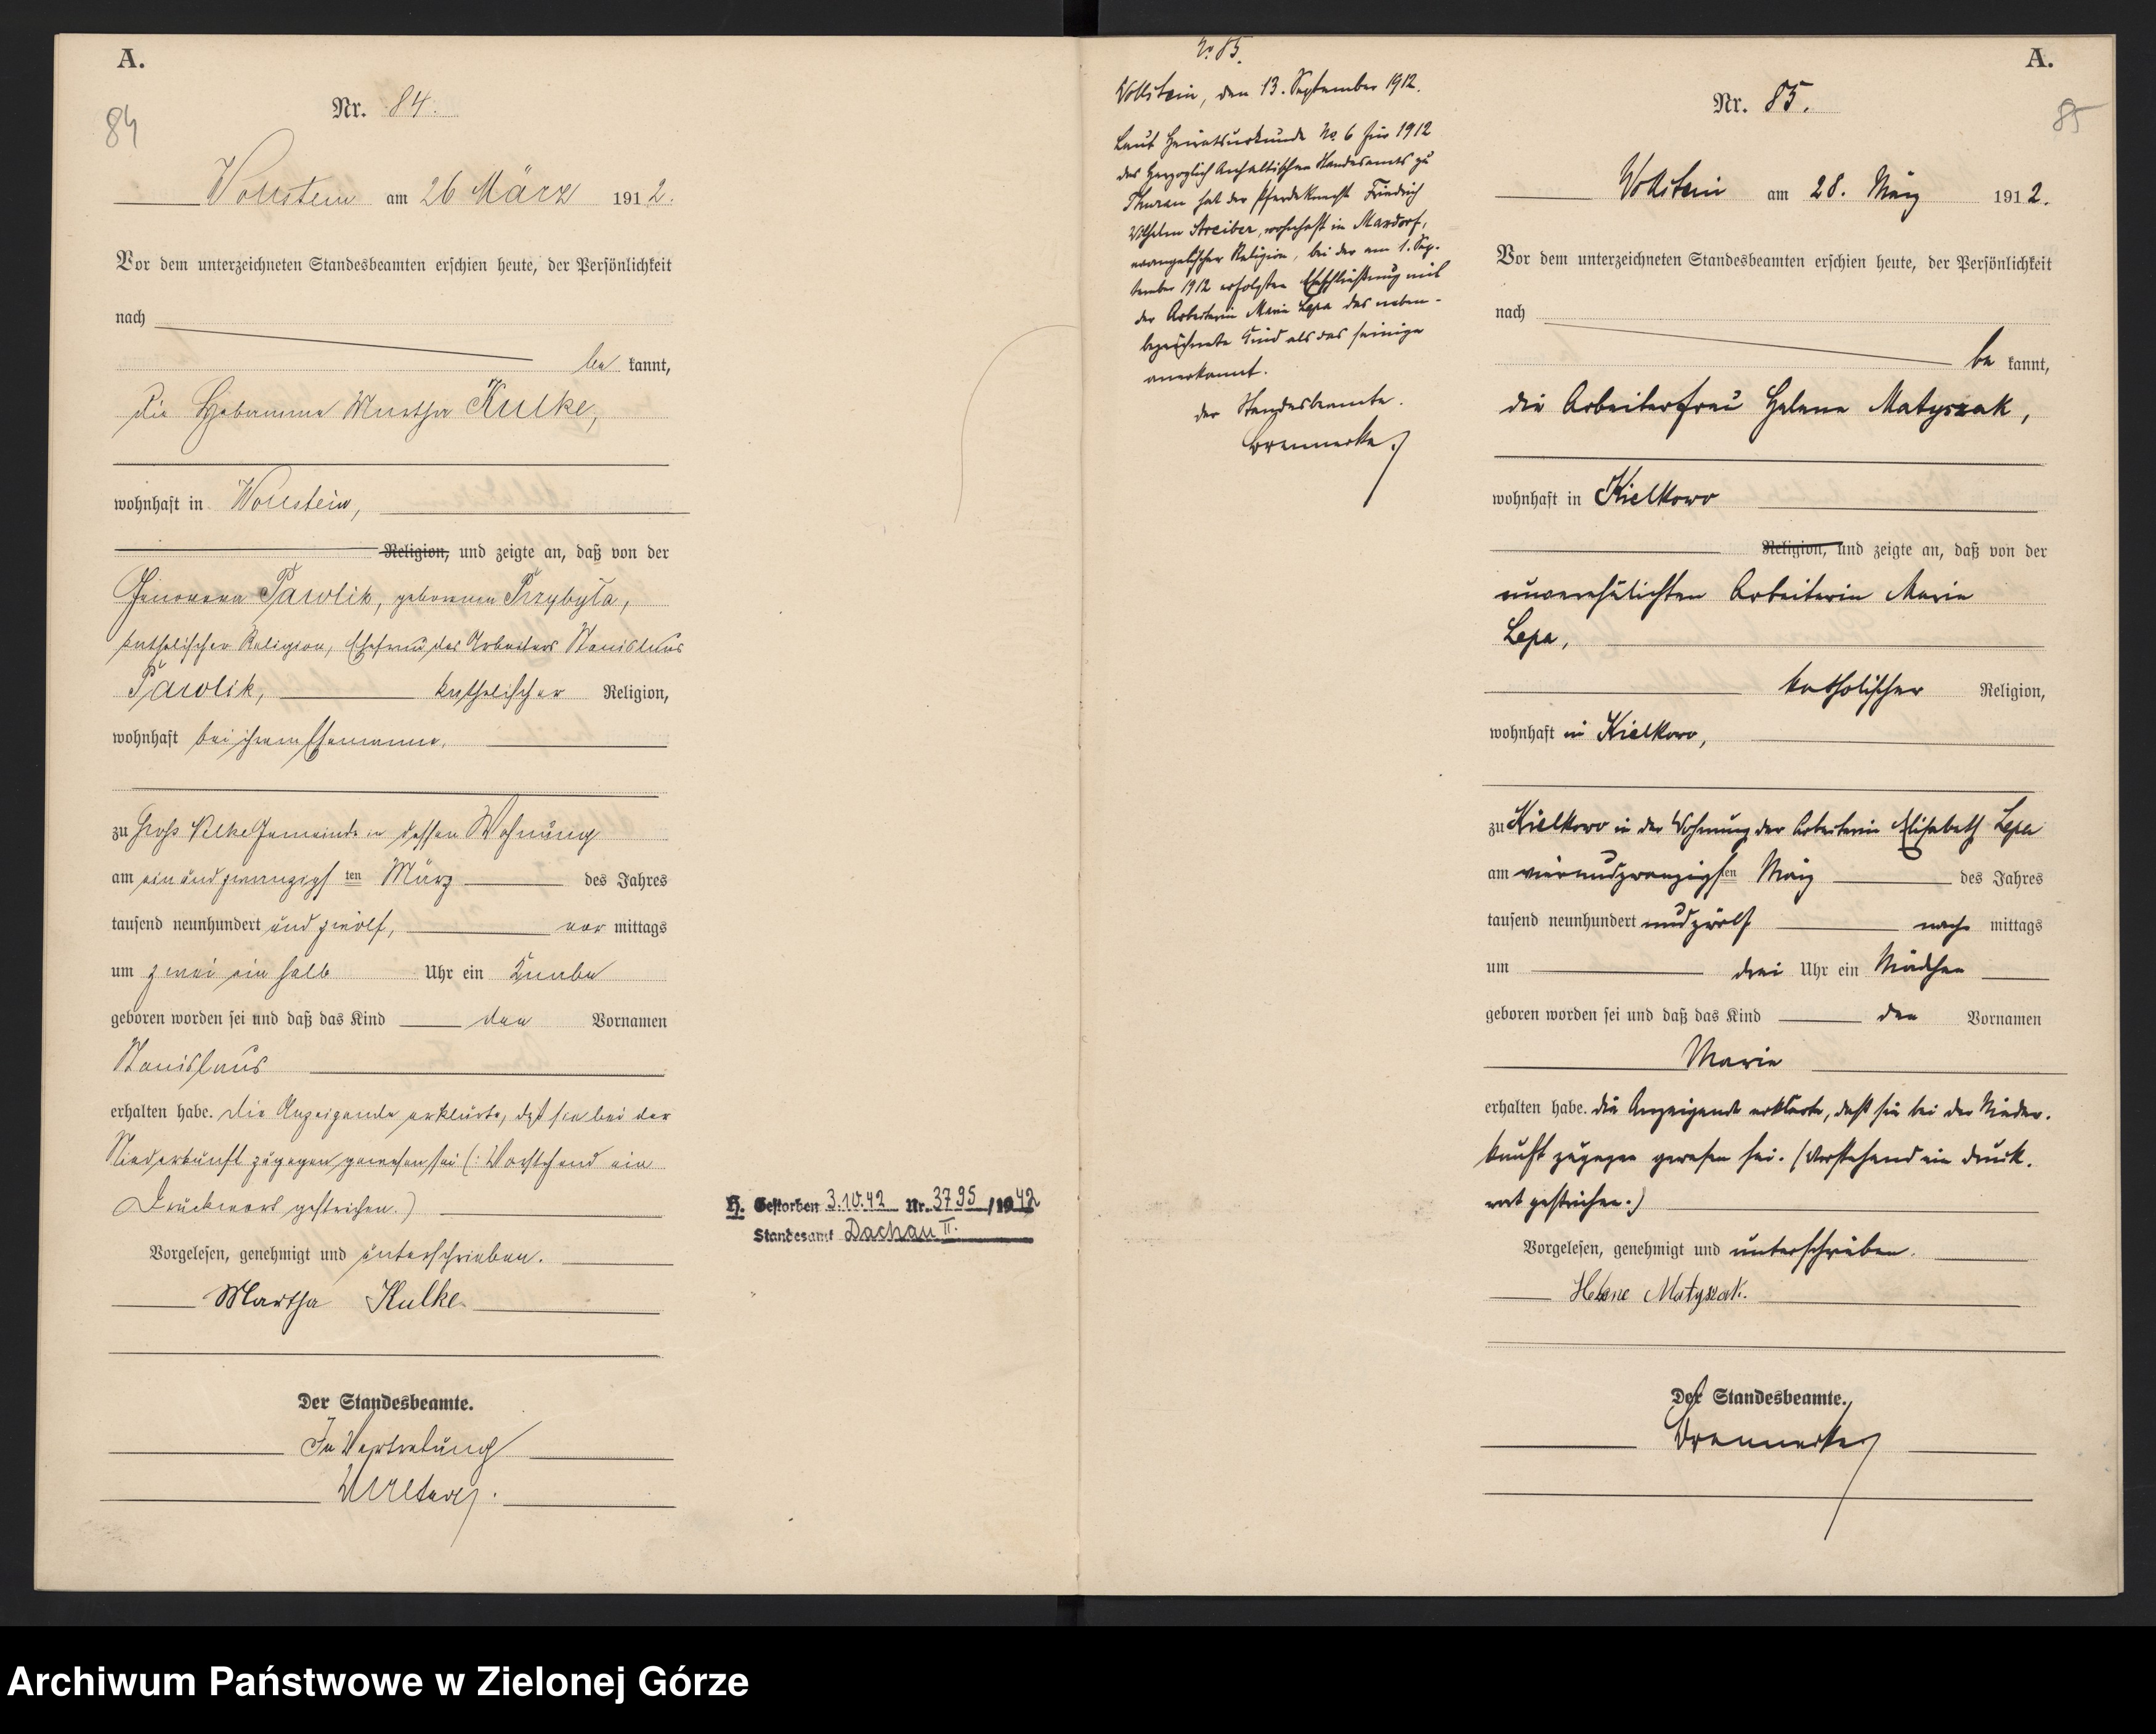 A.
84
Nr. 84.
Wollstein am 26 März 1912.
Vor dem unterzeichneten Standesbeamten erschien heute, der Persönlichkeit
nach
be kannt,
die Hebamme Martha Kulke,
wohnhaft in Wollstein,
Religion, und zeigte an, daß von der
Genovera Pawlik, geborenen Przybyla,
katholischer Religion, Ehefrau des Arbeiters Stanislaus
Pawlik, katholischer Religion,
wohnhaft bei ihrem Ehemanne,
zu Groß Nelke Gemeinde in dessen Wohnung
am einundzwanzigsten März des Jahres
tausend neunhundert und zwölf, vor mittags
um zwei ein halb Uhr ein Knabe
geboren worden sei und daß das Kind den Vornamen
Stanislaus
erhalten habe. Die Anzeigende erklärte, daß sie bei der
Niederkunft zugegen gewesen sei (: Vorstehend ein
Druckwort gestrichen.)
Vorgelesen, genehmigt und unterschrieben.
Martha Kulke
Der Standesbeamte.
In Vertretung
H. Gestorben 3.10.42 Nr. 3795/1942
Standesamt Dachau II.
No 85.
Wollstein, den 13. September 1912.
Laut Heiratsurkunde No 6 für 1912
des Herzoglich Anhaltischen Standesamts zu
Thurau hat der Pferdeknecht Friedrich
Wilhelm Streiber, wohnhaft in Maxdorf,
evangelischer Religion, bei der am 1. Sep-
tember 1912 erfolgten Eheschließung mit
der Arbeiterin Marie Lepa das neben-
bezeichnete Kind als das seinige
anerkannt.
Der Standesbeamte.
Brennecke.
A.
85
Nr. 85.
Wollstein am 28. März 1912.
Vor dem unterzeichneten Standesbeamten erschien heute, der Persönlichkeit
nach
be kannt,
die Arbeiterfrau Helene Matyszak,
wohnhaft in Kielkowo
Religion, und zeigte an, daß von der
unverehelichten Arbeiterin Marie
Lepa,
katholischer Religion,
wohnhaft in Kielkowo,
zu Kielkowo in der Wohnung der Arbeiterin Elisabeth Lepa
am vierundzwanzigsten März des Jahres
tausend neunhundert und zwölf nach mittags
um drei Uhr ein Mädchen
geboren worden sei und daß das Kind den Vornamen
Marie
erhalten habe. Die Anzeigende erklärte, daß sie bei der Nieder-
kunft zugegen gewesen sei. (Vorstehend ein Druck-
wort gestrichen.)
Vorgelesen, genehmigt und unterschrieben.
Helene Matyszak.
Der Standesbeamte.
Brennecke
Archiwum Państwowe w Zielonej Górze